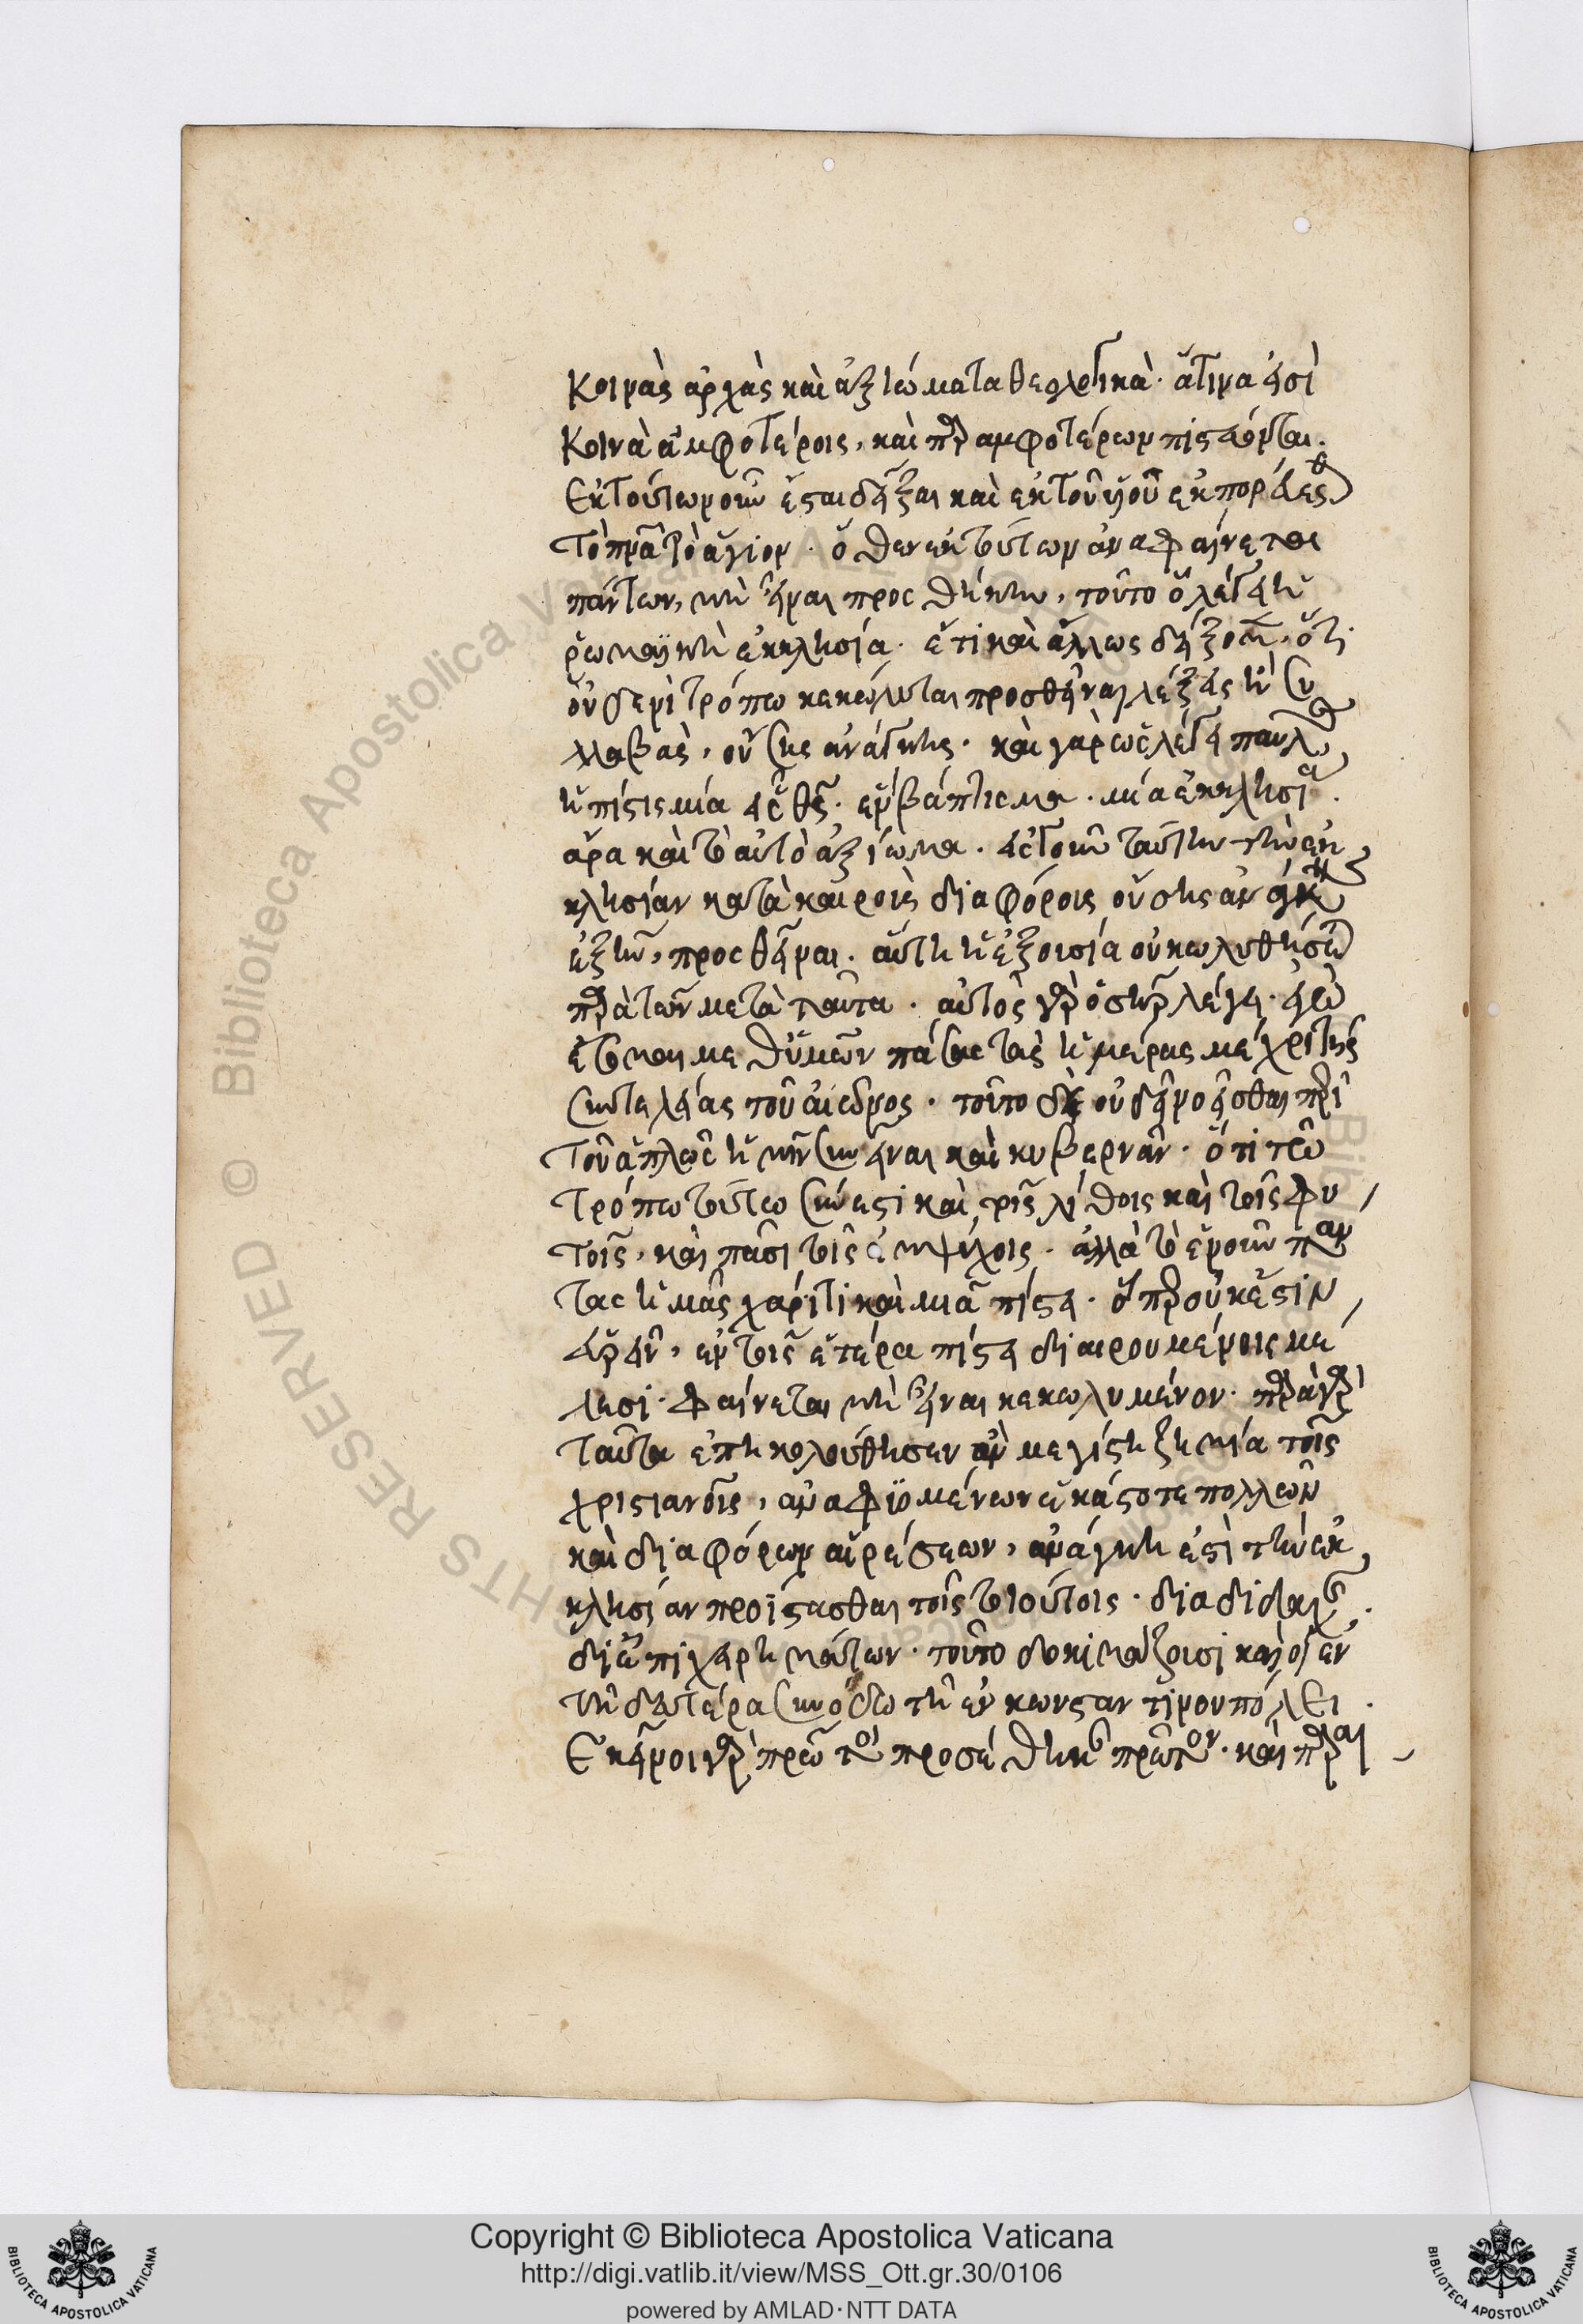 Κοινὰς ἀρχὰς καὶ ἀξιώματα θεολογικὰ. ἅτινα εἰσὶ
κοινὰ ἀμφοτέροις, καὶ παρ ἀμφοτέρων πιστεύονται.
Ἐκ τούτων οὖν ἔσται δεῖξαι καὶ ἐκ τοῦ υἱοῦ ἐκπορεύεσθ
τὸ πνα τὸ ἅγιον. ὅθεν ἐκ τούτων ἀναφαίνεται
πάντων, μὴ εἶναι προσθήκην, τοῦτο ὃ λέγει ἡ
ῥωμαϊκὴ ἐκκλησία. ἔτι καὶ ἄλλως δείξομεν, ὅτι
οὐδενὶ τρόπω κεκώλυται προσθεῖναι λέξεις ἢ συ
λλαβὰς, οὔσης ἀνάγκης. καὶ γὰρ ὡς λέγει παῦλος
ἡ πίστις μία εἷς θς. ἓν βάπτισμα. μία ἐκκλησία.
ἄρα καὶ τὸ αὐτὸ ἀξίωμα. εἰ τοίνυν ταύτην τὴν ἐκ
κλησίαν κατὰ καιροὺς διαφόροις οὔσης ἀνάγκης
ἐξῆν, προσθεῖναι. αὕτη ἡ ἐξουσία οὐ κωλυθήσε
παρὰ τῶν μετὰ ταῦτα. αὐτὸς γὰρ ὁ σηρ λέγει. ἐγὼ
ἔσομαι μεθ ὑμῶν πάσας τὰς ἡμέρας μέχρι τῆς
συντελείας τοῦ αἰῶνος. τοῦτο δὲ οὐ δεῖ νοεῖσθαι περὶ
τοῦ ἁπλῶς ἡμῖν συνεῖναι καὶ κυβερνᾶν. ὅτι τῶ
τρόπω τούτω σύνεστι καὶ τοῖς λίθοις καὶ τοῖς φυ
τοῖς, καὶ πᾶσι τοῖς ἐμψύχοις. ἀλλὰ τὸ ἑνοῦν πάν
τας ἡμᾶς χάριτι καὶ μιᾶ πίστει. ὅπερ οὐκ ἔστιν
εὑρεῖν, ἐν τοῖς ἑτέρα πίστει διαιρουμένοις μέ
λεσι. φαίνεται μὴ εἶναι κεκωλυμένον. παρὰ γὰρ
ταῦτα ἐπηκολούθησεν ἂν μεγίστη ζημία τοῖς
χριστιανοῖς, ἀναφυομένων ἑκάστοτε πολλῶν
καὶ διαφόρων αἱρέσεων, ἀνάγκη ἐστὶ τὴν ἐκ
κλησίαν προΐστασθαι τοῖς τοιούτοις. διὰ διδαχῶν
δι ἐπιχειρημάτων. τοῦτο δοκιμάζουσι καὶ οἱ ἐν
τῆ δευτέρα συνόδω τῆ ἐν κωνσταντινουπόλει.
Ἐκεῖνοι γὰρ πρῶτοι προσέθηκαν πρῶτον. καὶ